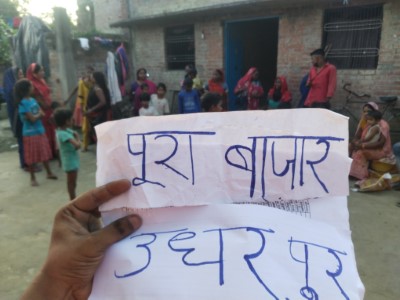 पूरा बाजार
उधर पूर